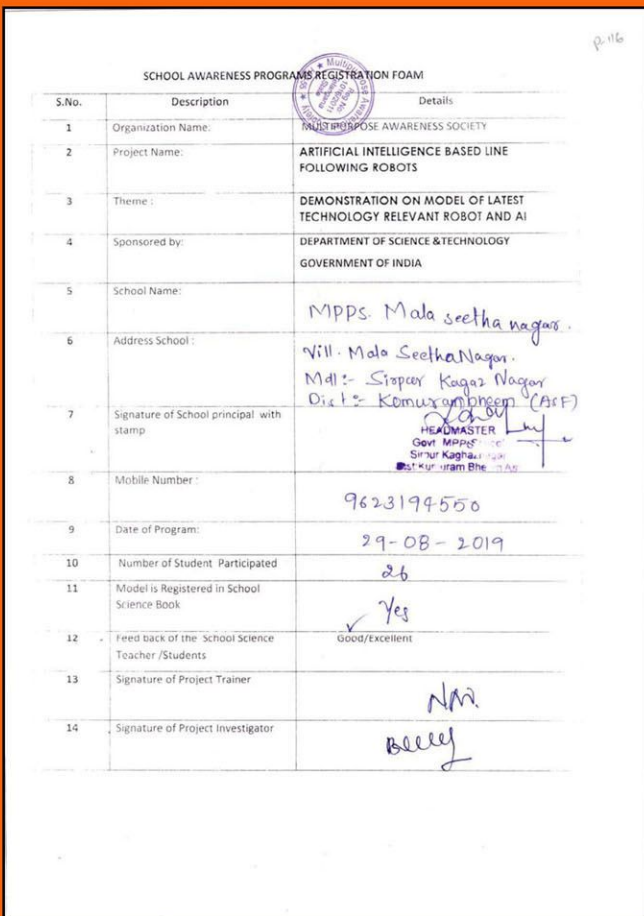 p-116
SCHOOL AWARENESS PROGRAMS REGISTRATION FOAM
S.No. Description Details
1 Organization Name: MULTIPURPOSE AWARENESS SOCIETY
2 Project Name: ARTIFICIAL INTELLIGENCE BASED LINE
FOLLOWING ROBOTS
3 Theme : DEMONSTRATION ON MODEL OF LATEST
TECHNOLOGY RELEVANT ROBOT AND AI
4 Sponsored by: DEPARTMENT OF SCIENCE &TECHNOLOGY
GOVERNMENT OF INDIA
5 School Name: MPPS. Mala seetha nagar.
6 Address School : Vill. Mala SeethaNagar.
Mdl:- Sirpur Kagaz Nagar
Dist:- Komurambheem (ASF)
7 Signature of School principal with
stamp
HEADMASTER
Govt MPPS
Sirpur Kaghaz
8 Mobile Number : 9623194550
9 Date of Program: 29-08-2019
10 Number of Student Participated 26
11 Model is Registered in School
Science Book Yes
12 Feed back of the School Science
Teacher /Students ✓ Good/Excellent
13 Signature of Project Trainer
14 Signature of Project Investigator